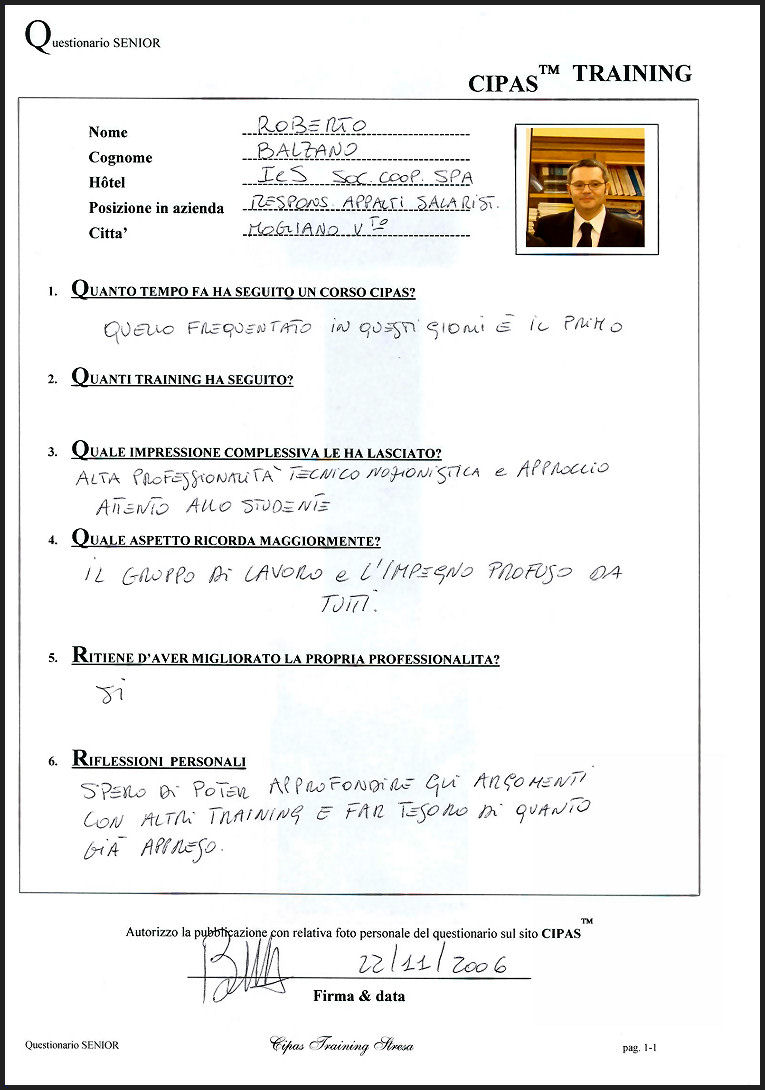 Questionario SENIOR
CIPAS™ TRAINING
Nome ROBERTO
Cognome BALZANO
Hôtel IeS SOC. COOP. SPA
Posizione in azienda RESPONS. APPALTI SALARIST.
Citta’ MOGLIANO V.TO
1. QUANTO TEMPO FA HA SEGUITO UN CORSO CIPAS?
QUELLO FREQUENTATO IN QUESTI GIORNI È IL PRIMO
2. QUANTI TRAINING HA SEGUITO?
3. QUALE IMPRESSIONE COMPLESSIVA LE HA LASCIATO?
ALTA PROFESSIONALITA' TECNICO NOZIONISTICA e APPROCCIO
ATTENTO ALLO STUDENTE
4. QUALE ASPETTO RICORDA MAGGIORMENTE?
IL GRUPPO DI LAVORO e L'IMPEGNO PROFUSO DA
TUTTI.
5. RITIENE D’AVER MIGLIORATO LA PROPRIA PROFESSIONALITA?
SI
6. RIFLESSIONI PERSONALI
SPERO DI POTER APPROFONDIRE GLI ARGOMENTI
CON ALTRI TRAINING E FAR TESORO DI QUANTO
GIÀ APPRESO.
Autorizzo la pubblicazione con relativa foto personale del questionario sul sito CIPAS™
22/11/2006
Firma & data
Questionario SENIOR
Cipas Training Stresa
pag. 1-1